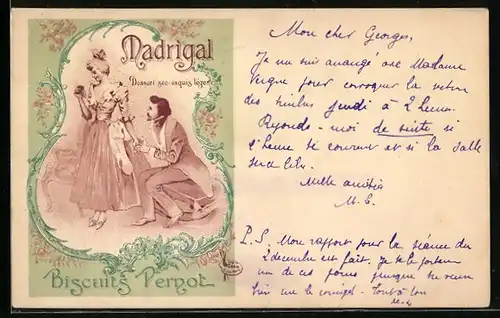 Madrigal
Dessert sec exquis léger
Biscuits Pernot
Mon cher Georges,
Je me suis arrangé avec Madame
Vergne pour convoquer la section
des timbres jeudi à 2 heures.
Réponds-moi de suite si
l'heure te convient et si la salle
sera libre.
Mille amitiés
M. E.
P.S. Mon rapport pour la séance du
2 décembre est fait. Je te le porterai
un de ces jours
bien me le corriger. Tout à toi